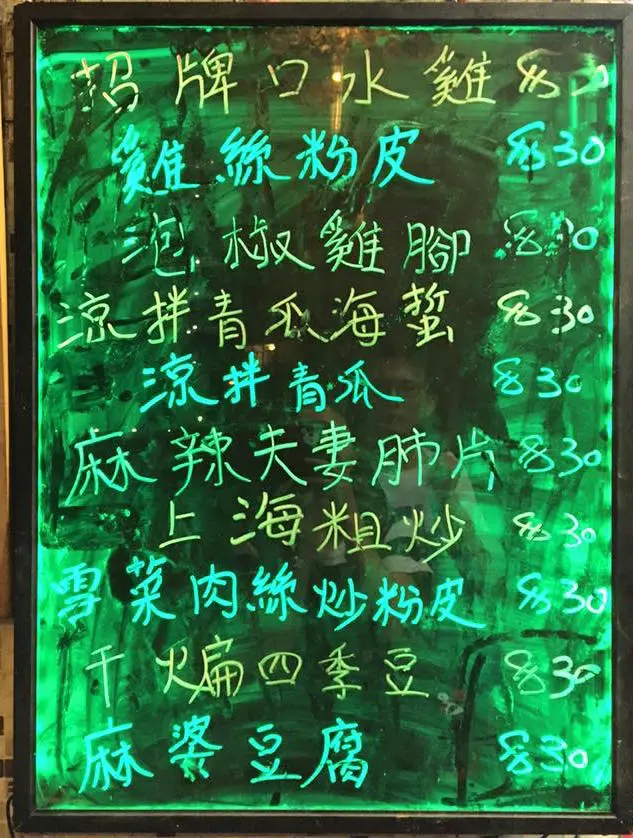 招牌口水雞 $30
雞絲粉皮 $30
泡椒雞腳 $30
涼拌青瓜海蜇 $30
涼拌青瓜 $30
麻辣夫妻肺片 $30
上海粗炒 $30
雪菜肉絲炒粉皮 $30
干煸四季豆 $30
麻婆豆腐 $30